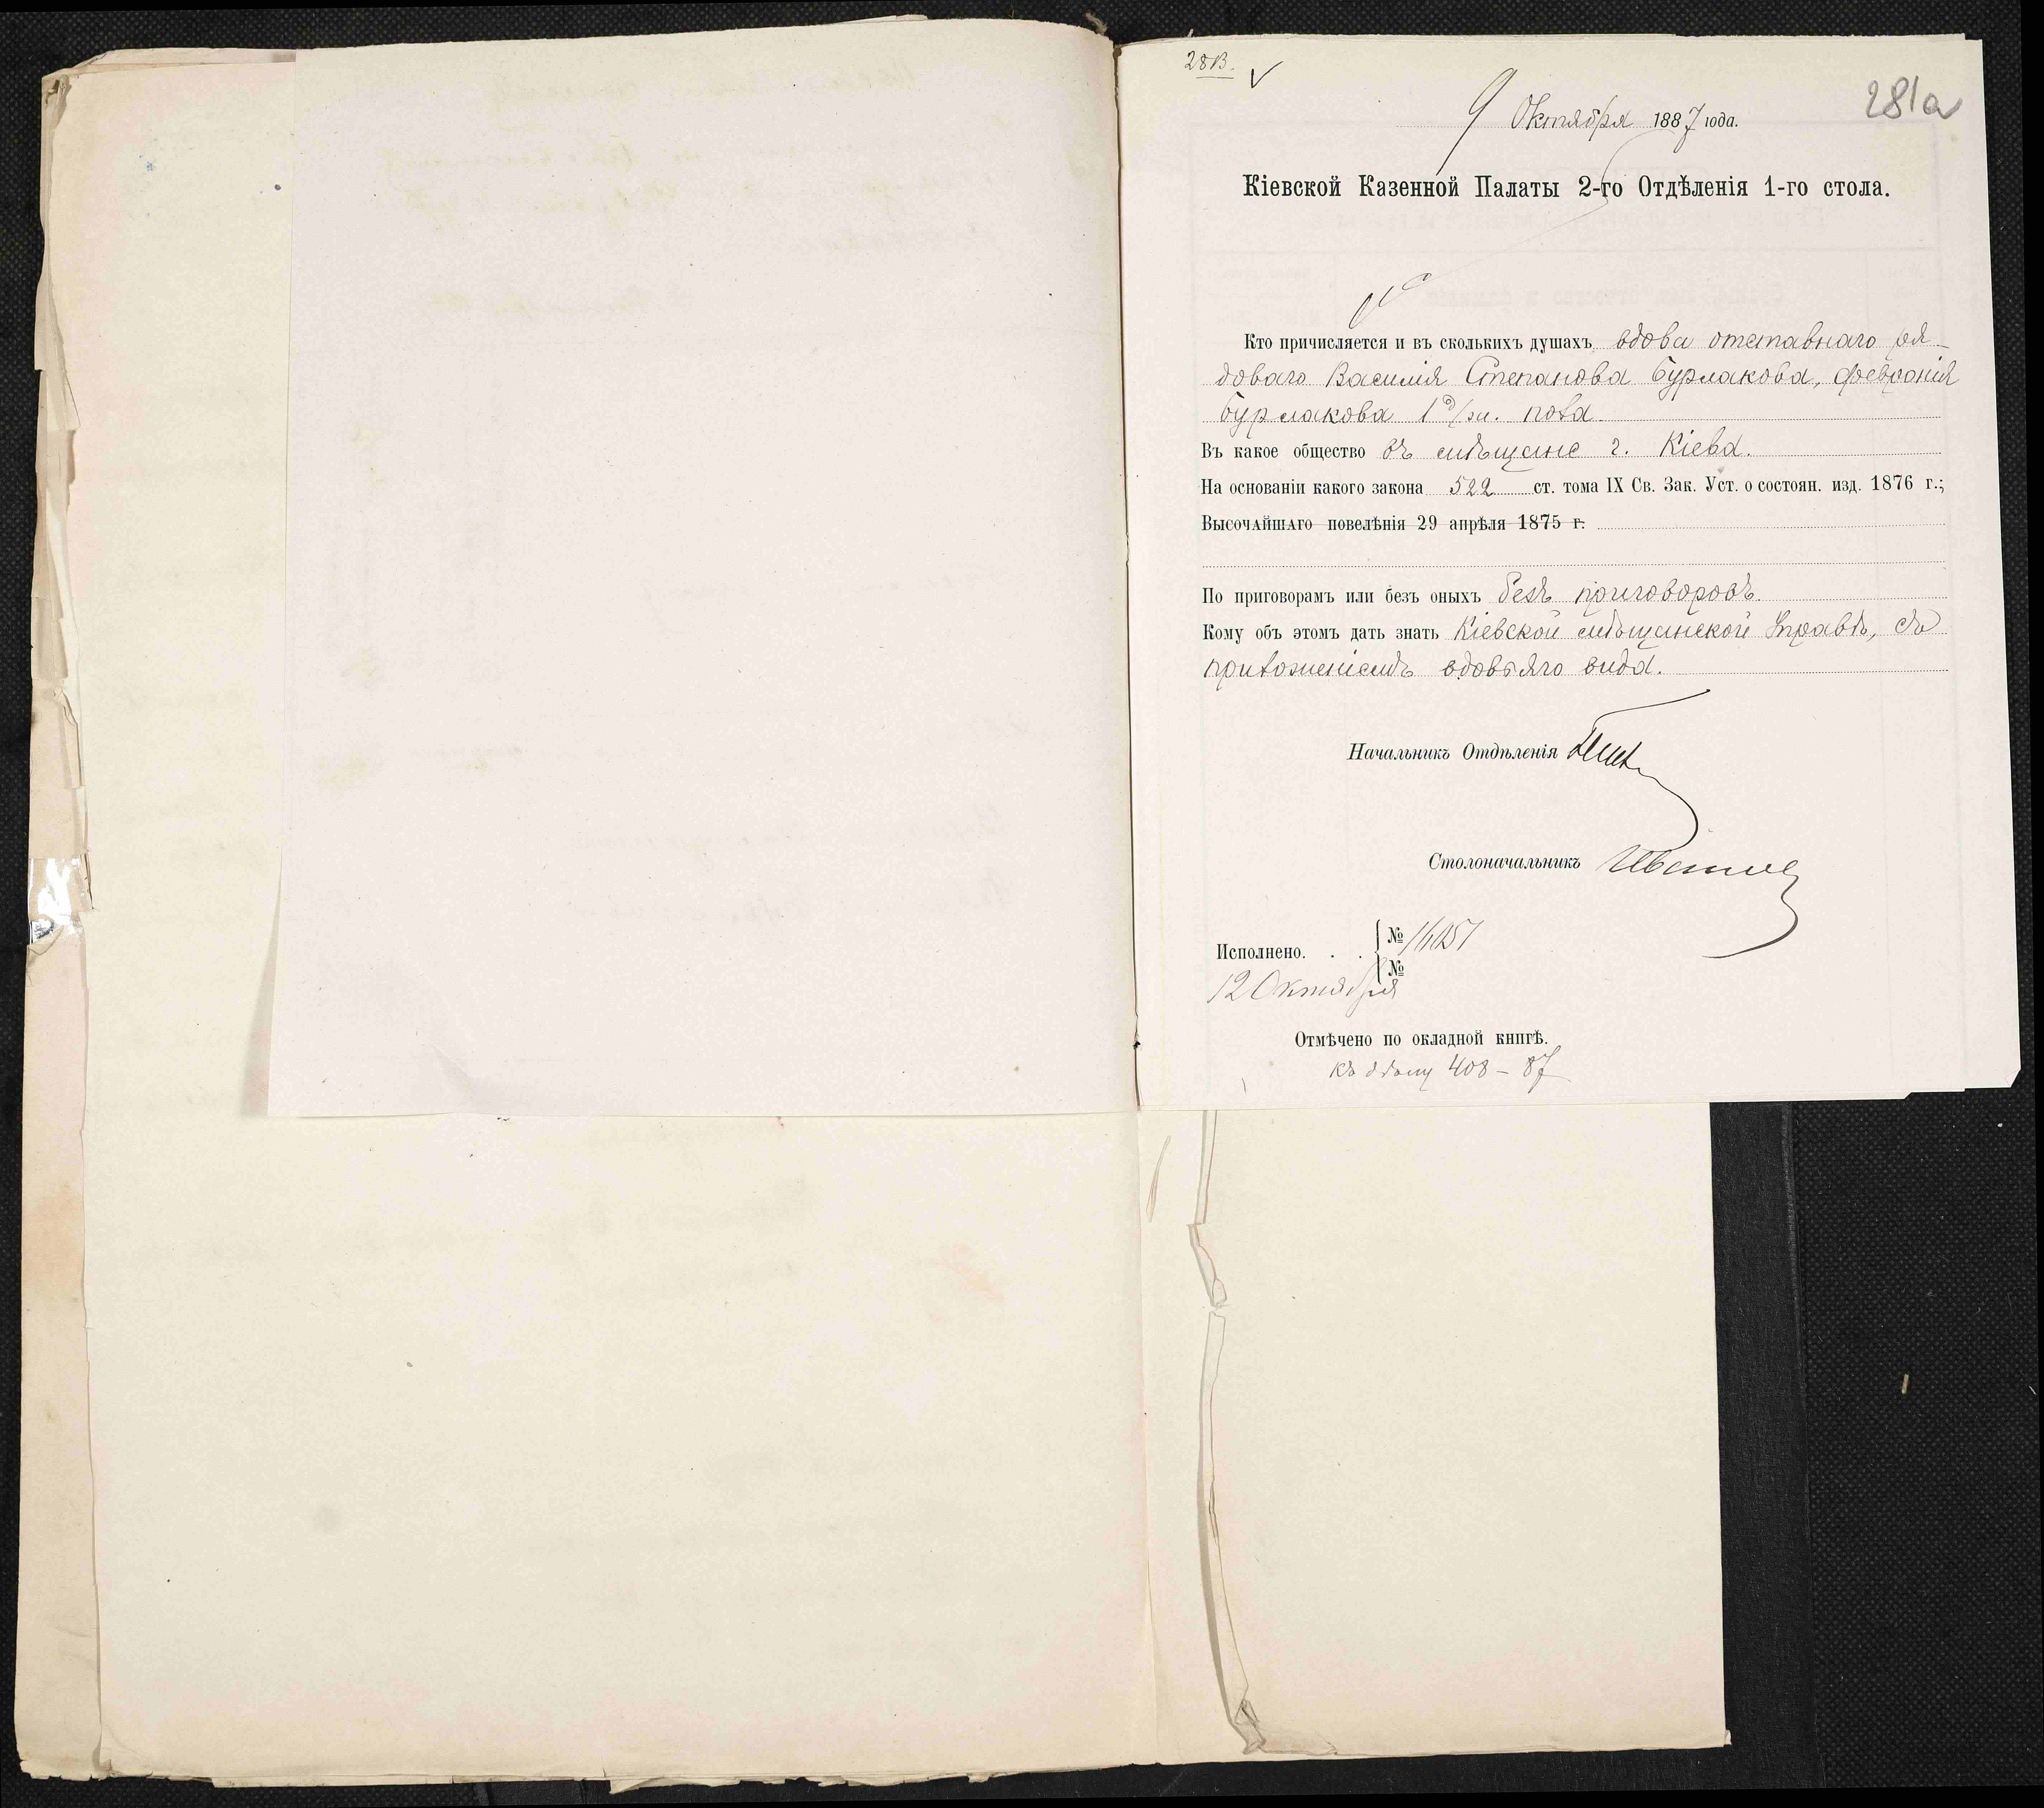 28В.
281а
9 Октября 1887 года.
Кіевской Казенной Палаты 2-го Отдѣленія 1-го стола.
Кто причисляется и въ сколькихъ душахъ вдова отставнаго ря-
доваго Василія Степанова Бурлакова, Февронія
Бурлакова 1 д/ж. пола.
Въ какое общество въ мѣщане г. Кіева.
На основаніи какого закона 522 ст. тома IX Св. Зак. Уст. о состоян. изд. 1876 г.;
Высочайшаго повелѣнія 29 апрѣля 1875 г.
По приговорамъ или безъ оныхъ безъ приговоровъ.
Кому объ этомъ дать знать Кіевской мѣщанской Управѣ, съ
приложеніемъ вдовьяго вида.
Начальникъ Отдѣленія
Столоначальникъ
Исполнено. . . № 
№
12 Октября
Отмѣчено по окладной книгѣ.
къ дѣлу 408 – 87